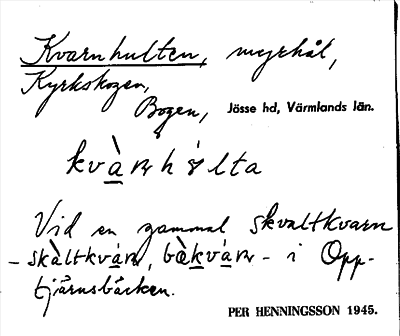 Kvarnhulten, myrhål,
Kyrkskogen,
Bogen, Jösse hd, Värmlands län.
kvà̱ɳhó̵lta
Vid en gammal skvaltkvarn
- skàltkvá̱ɳ, bə̀kvá̱ɳ - i Opp-
tjärnsbäcken.
PER HENNINGSSON 1945.